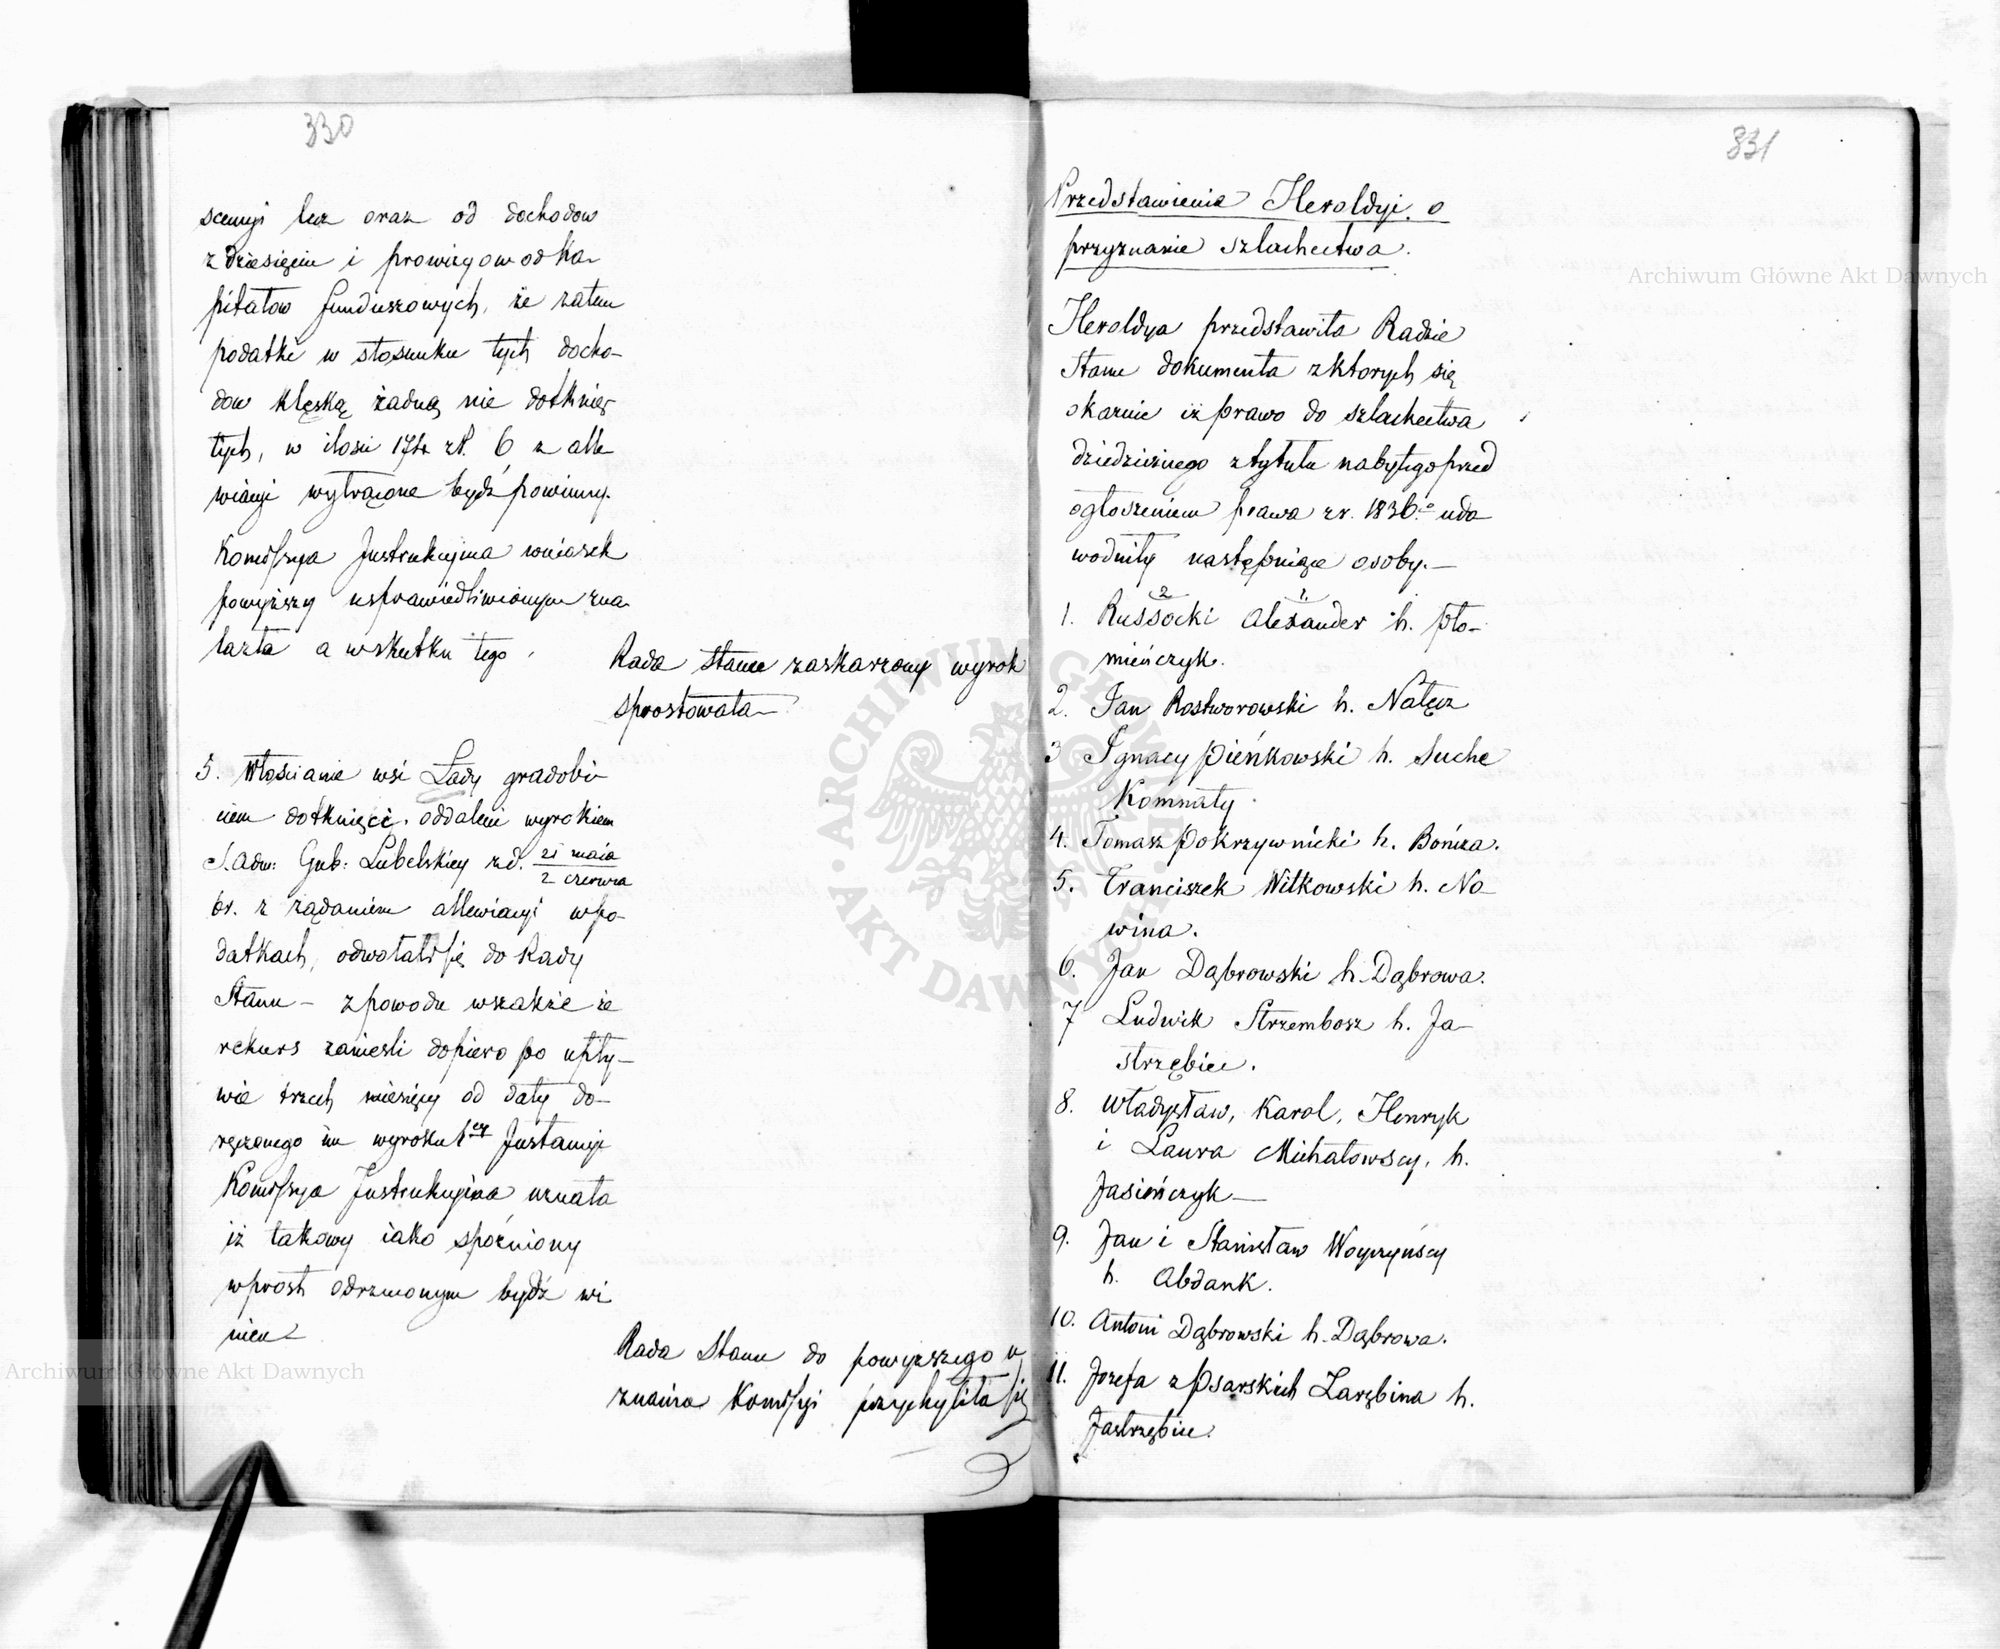 330
scencyi lecz oraz od dochodow
z dziesięcin i prowizyow od ka-
pitałow funduszowych, że zatem
podatki w stosunku tych docho-
dow klęską żadną nie dotknię-
tych, w ilości zł. 6 z alle-
wiacyi wytrącone bydź powinny.
Kommissya Instrukcyjna wniosek
powyższy usprawiedliwionym zna-
lazła a wskutku tego
Rada Stanu zaskarzony wyrok
sprostowała
5. Włościanie wsi Lady gradobi-
ciem dotknięci, oddaleni wyrokiem
S. Adm: Gub: Lubelskiey z d. 21 maja / 2 czerwca
br. z żądaniem allewiacyi w po-
datkach, odwołali się do Rady
Stanu – z powodu wszakże że
rekurs zanieśli dopiero po upły-
wie trzech miesięcy od daty do-
ręczonego im wyroku 1ey Instancyi
Kommissya Instrukcyjna uznała
iż takowy iako spóźniony
wprost odrzuconym bydź wi-
nien
Rada Stanu do powyższego u
znania Kommissyi przychyliła się
331
Przedstawienie Heroldyi o
przyznanie szlachectwa.
Heroldya przedstawiła Radzie
Stanu dokumenta z ktorych się
okazuie iż prawo do szlachectwa
dziedzicznego z tytułu nabytego przed
ogłoszeniem prawa z r. 1836.o udo
wodniły następuiące osoby.—
2 1.
1. Russocki Alexander h. Pło-
mieńczyk.
2. Jan Rostworowski h. Nałęcz
3 Ignacy Pieńkowski h. Suche
Komnaty
4. Tomasz Pokrzywnicki h. Bończa.
5. Franciszek Witkowski h. No-
wina.
6. Jan Dąbrowski h. Dąbrowa.
7 Ludwik Strzembosz h. Ja-
strzębiec.
8. Władysław, Karol, Henryk
i Laura Michałowscy, h.
Jasieńczyk—
9. Jan i Stanisław Woyczyńscy
h. Abdank.
10. Antoni Dąbrowski h. Dąbrowa.
11. Jozefa z Psarskich Zarębina h.
Jastrzębiec.
Archiwum Główne Akt Dawnych
Archiwum Główne Akt Dawnych
ARCHIWUM GŁÓWNE · AKT DAWNYCH ·